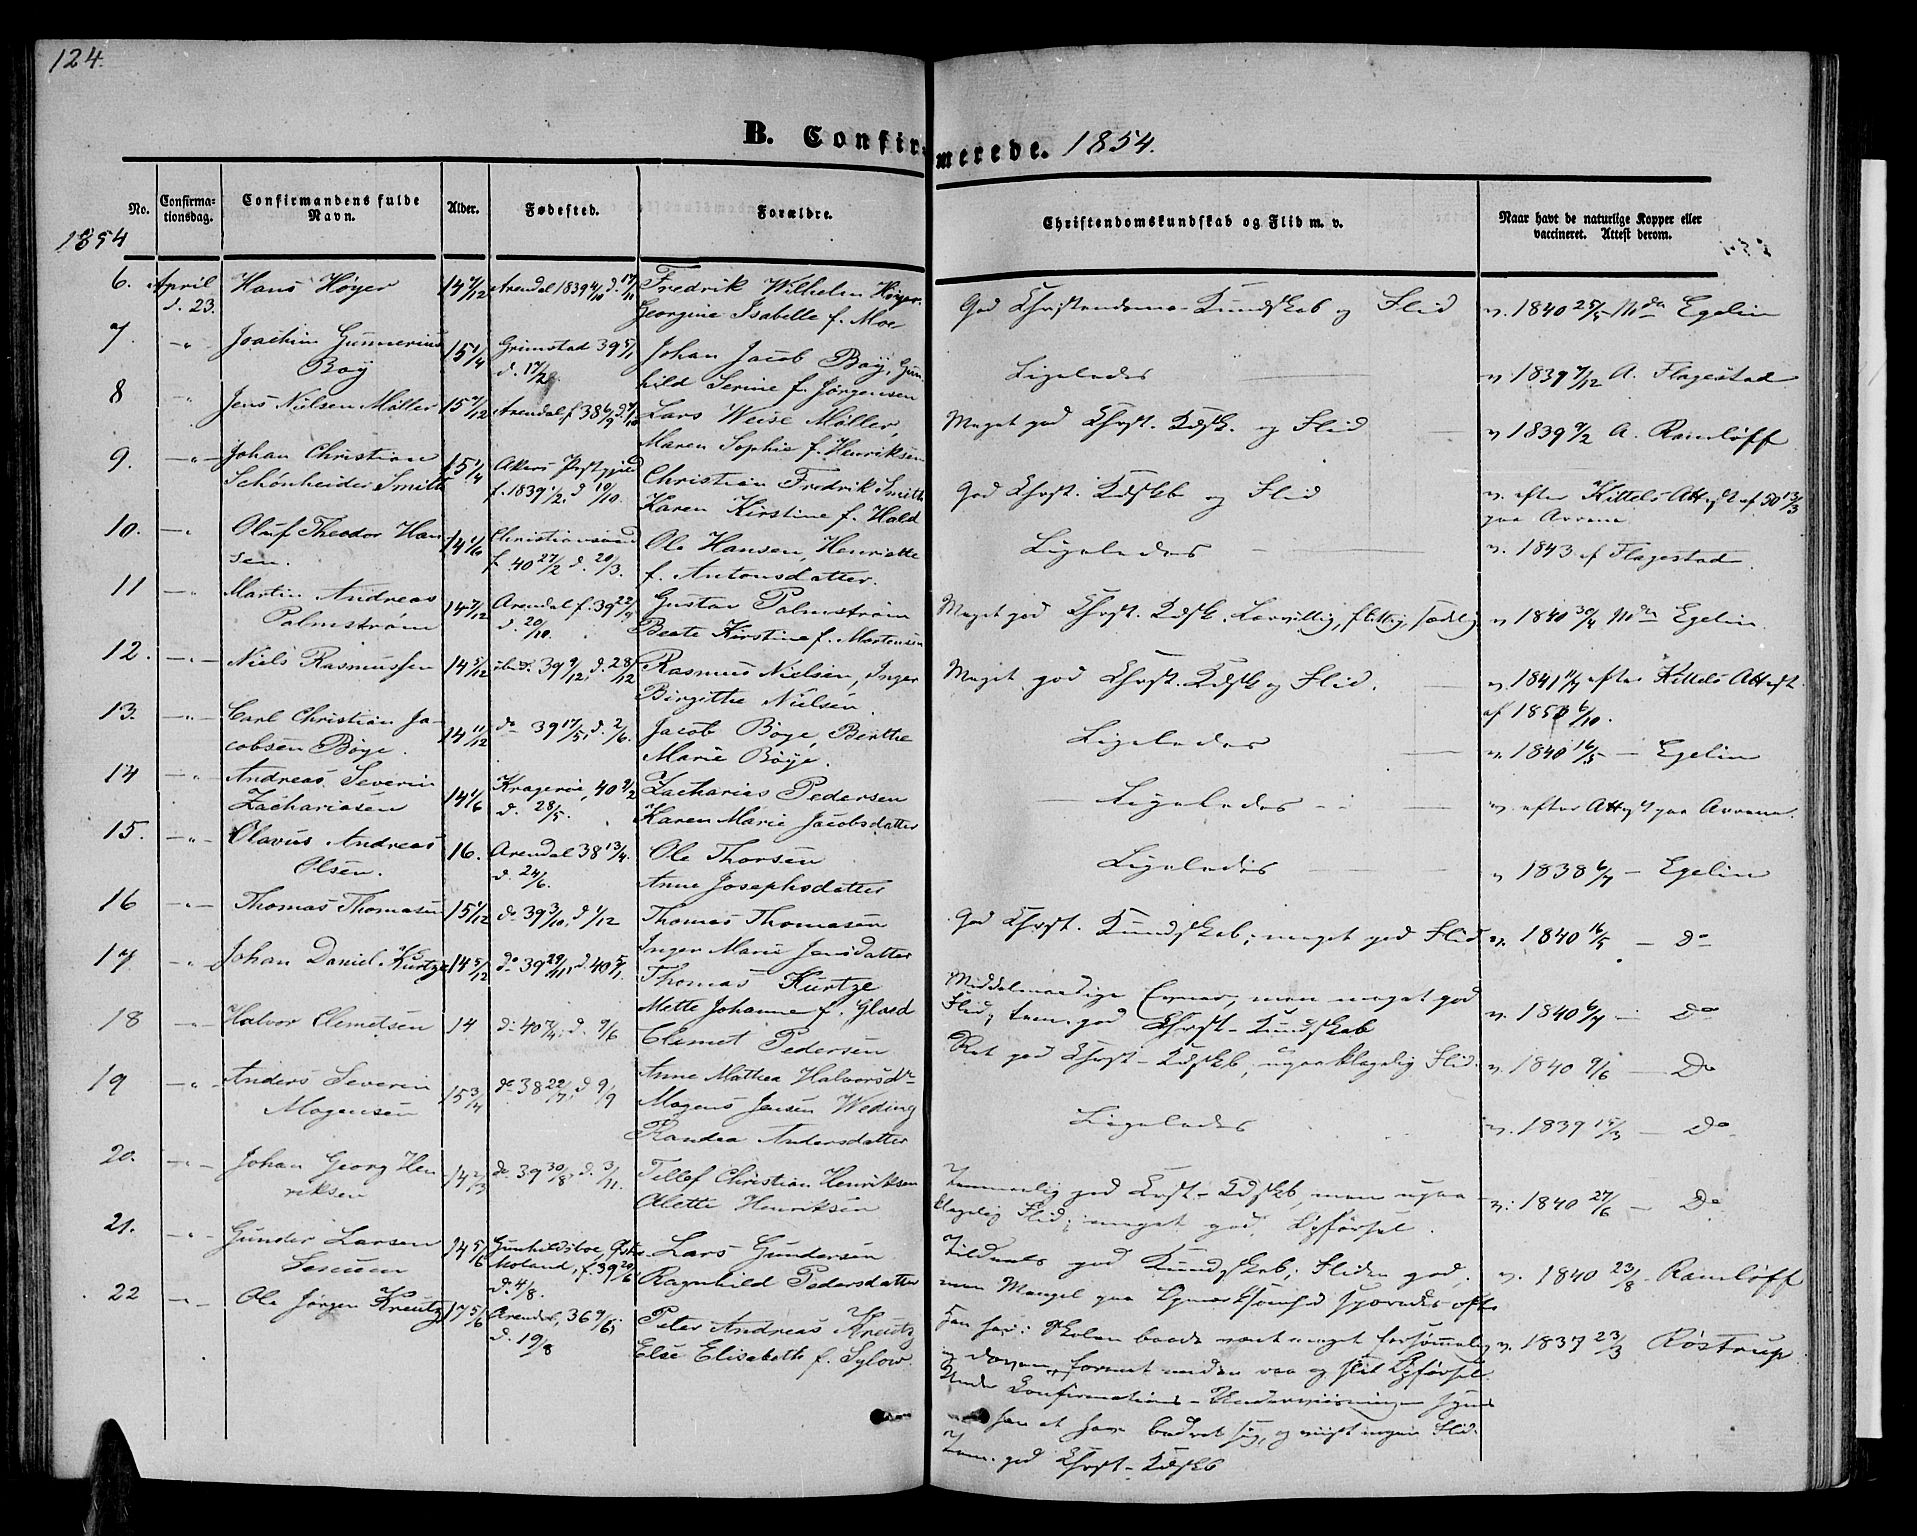 124.
B. Confirmerede. 1854.
No.
Confirma-
tionsdag.
Confirmandens fulde
Navn.
Alder.
Fødested.
Forældre.
Christendomskundskab og Flid m. v.
Naar havt de naturlige Kopper eller
vaccineret. Attest derom.
1854
6. April Hans Høyer 14 7/12 Arendal 1839 Fredrik Wilhelm Høyer
d. 23. Georgine Isabelle f. Moe
God Christendoms-Kundskab og Flid v. 1840 25/5 Egelin
7 -"- Joachim Gunnerius 15 1/4 Grimstad 39 5/1 Johan Jacob Boy, Gun-
Boy d. 17/2 hild Serine f. Jørgensen
Ligeledes v. 1839 7/12 A. Flagestad
8 -"- Jens Nielsen Møller 15 7/12 Arendal, f. 38 Lars Weise Møller,
Maren Sophie f. Henriksen
Meget god Chrst. Kdsk. og Flid v. 1839 9/2 A. Ramløff
9. -"- Johan Christian 15 1/4 Akers Præstegjeld Christian Fredrik Smith
Schönheider Smith f. 1839 1/2. d 10/10. Karen Kirstine f. Hald
God Chrst. Kdskb og Flid v. efter Kittels Attest af 50 13/3
paa Arrene
10. -"- Oluf Theodor Han 14 1/6 Christianssand Ole Hansen, Henriette
sen. f. 40 27/2 d. 20/3. f. Antonsdatter.
Ligeledes v. 1843 af Flagestad
11 -"- Martin Andreas 14 7/12 Arendal f. 39 22/9 Gustav Palmstrøm
Palmstrøm d. 20/10. Beate Kirstine f. Martensen
Meget god Chrst. Kdsk. Lærvillig, flittig, sædelig v. 1840 30/4 Egelin
12. -"- Niels Rasmussen 14 5/12 ibid. 39 9/12, d. 28/12 Rasmus Nielsen, Inger
Birgitthe Nielsen.
Meget god Chrst. Kdsk og Flid. v. 1841 efter Kittels Attest
af 1850 6/10.
13. -"- Carl Christian Ja- 14 11/12 do 39 17/5, d. 2/6. Jacob Bøye, Birthe
cobsen Bøye. Marie Bøye.
Ligeledes v. 1840 16/5 - Egelin
14 -"- Andreas Severin 14 1/6 Kragerøe, 40 9/2 Zacharias Pedersen
Zachariasen d. 28/5. Karen Marie Jacobsdatter
Ligeledes v. efter Attest paa Arrene.
15. -"- Olavus Andreas 16. Arendal 38 13/4. Ole Thorsen
Olsen. d. 24/6. Anne Josephsdatter
Ligeledes v. 1838 6/7 - Egelin
16 -"- Thomas Thomasen 15 1/12 do 39 3/10, d 1/12 Thomas Thomasen
Inger Marie Jensdatter
God Chrst. Kundskab, meget god Flid v. 1840 16/5 - Do
17 -"- Johan Daniel Kurtze 14 5/12 do 39 29/11, d. 40 5/1. Thomas Kurtze
Mette Johanne f. Glaed
Middelmaadige Evner, men meget god
Flid; tem. god Chrst-Kundskab v. 1840 6/7 - Do
18 -"- Halvor Clemetsen 14 do 40 7/4. d. 9/6 Clemet Pedersen
Anne Mathea Halvorsdr
Ret god Chrst-Kdskb, upaaklagelig Flid. v. 1840 9/6 - Do
19 -"- Anders Severin 15 3/4 do 38 22/7, d 9/9 Mogens Jensen Weding
Mogensen Randea Andersdatter
Ligeledes v. 1839 15/3 - Do
20. -"- Johan Georg Hen 14 2/3 do 39 30/8, d. 3/11. Tellef Christian Henriksen
riksen Alette Henriksen
Temmelig god Chrst-Kdskb, men upaa-
klagelig Flid; meget god Opførsel. v. 1840 27/6 - Do
21. -"- Gunder Larsen 14 5/6 Gunhildsboe, Østre Lars Gundersen
Moland, f. 39 29/6 Ragnhild Pedersdatter
d. 4/8.
Tildeels god Kundskab; Fliden god.
men Mangel paa Opmærksomhed sporedes ofte v. 1840 23/8 - Ramløff
22 -"- Ole Jørgen Kreutz 17 5/6 Arendal, 36 9/6; Peter Andreas Kreutz
d. 19/8 Else Elisabeth f. Sylow.
Han har i Skolen baade været meget forsømmelig v. 1837 23/3 Røstrup
og doven, forenet med en raa og slet Opførsel.
Under Confirmations-Underviisningen synes
han at have bedret sig, og viist megen Flid.
Tem. god Chrst-Kdskb